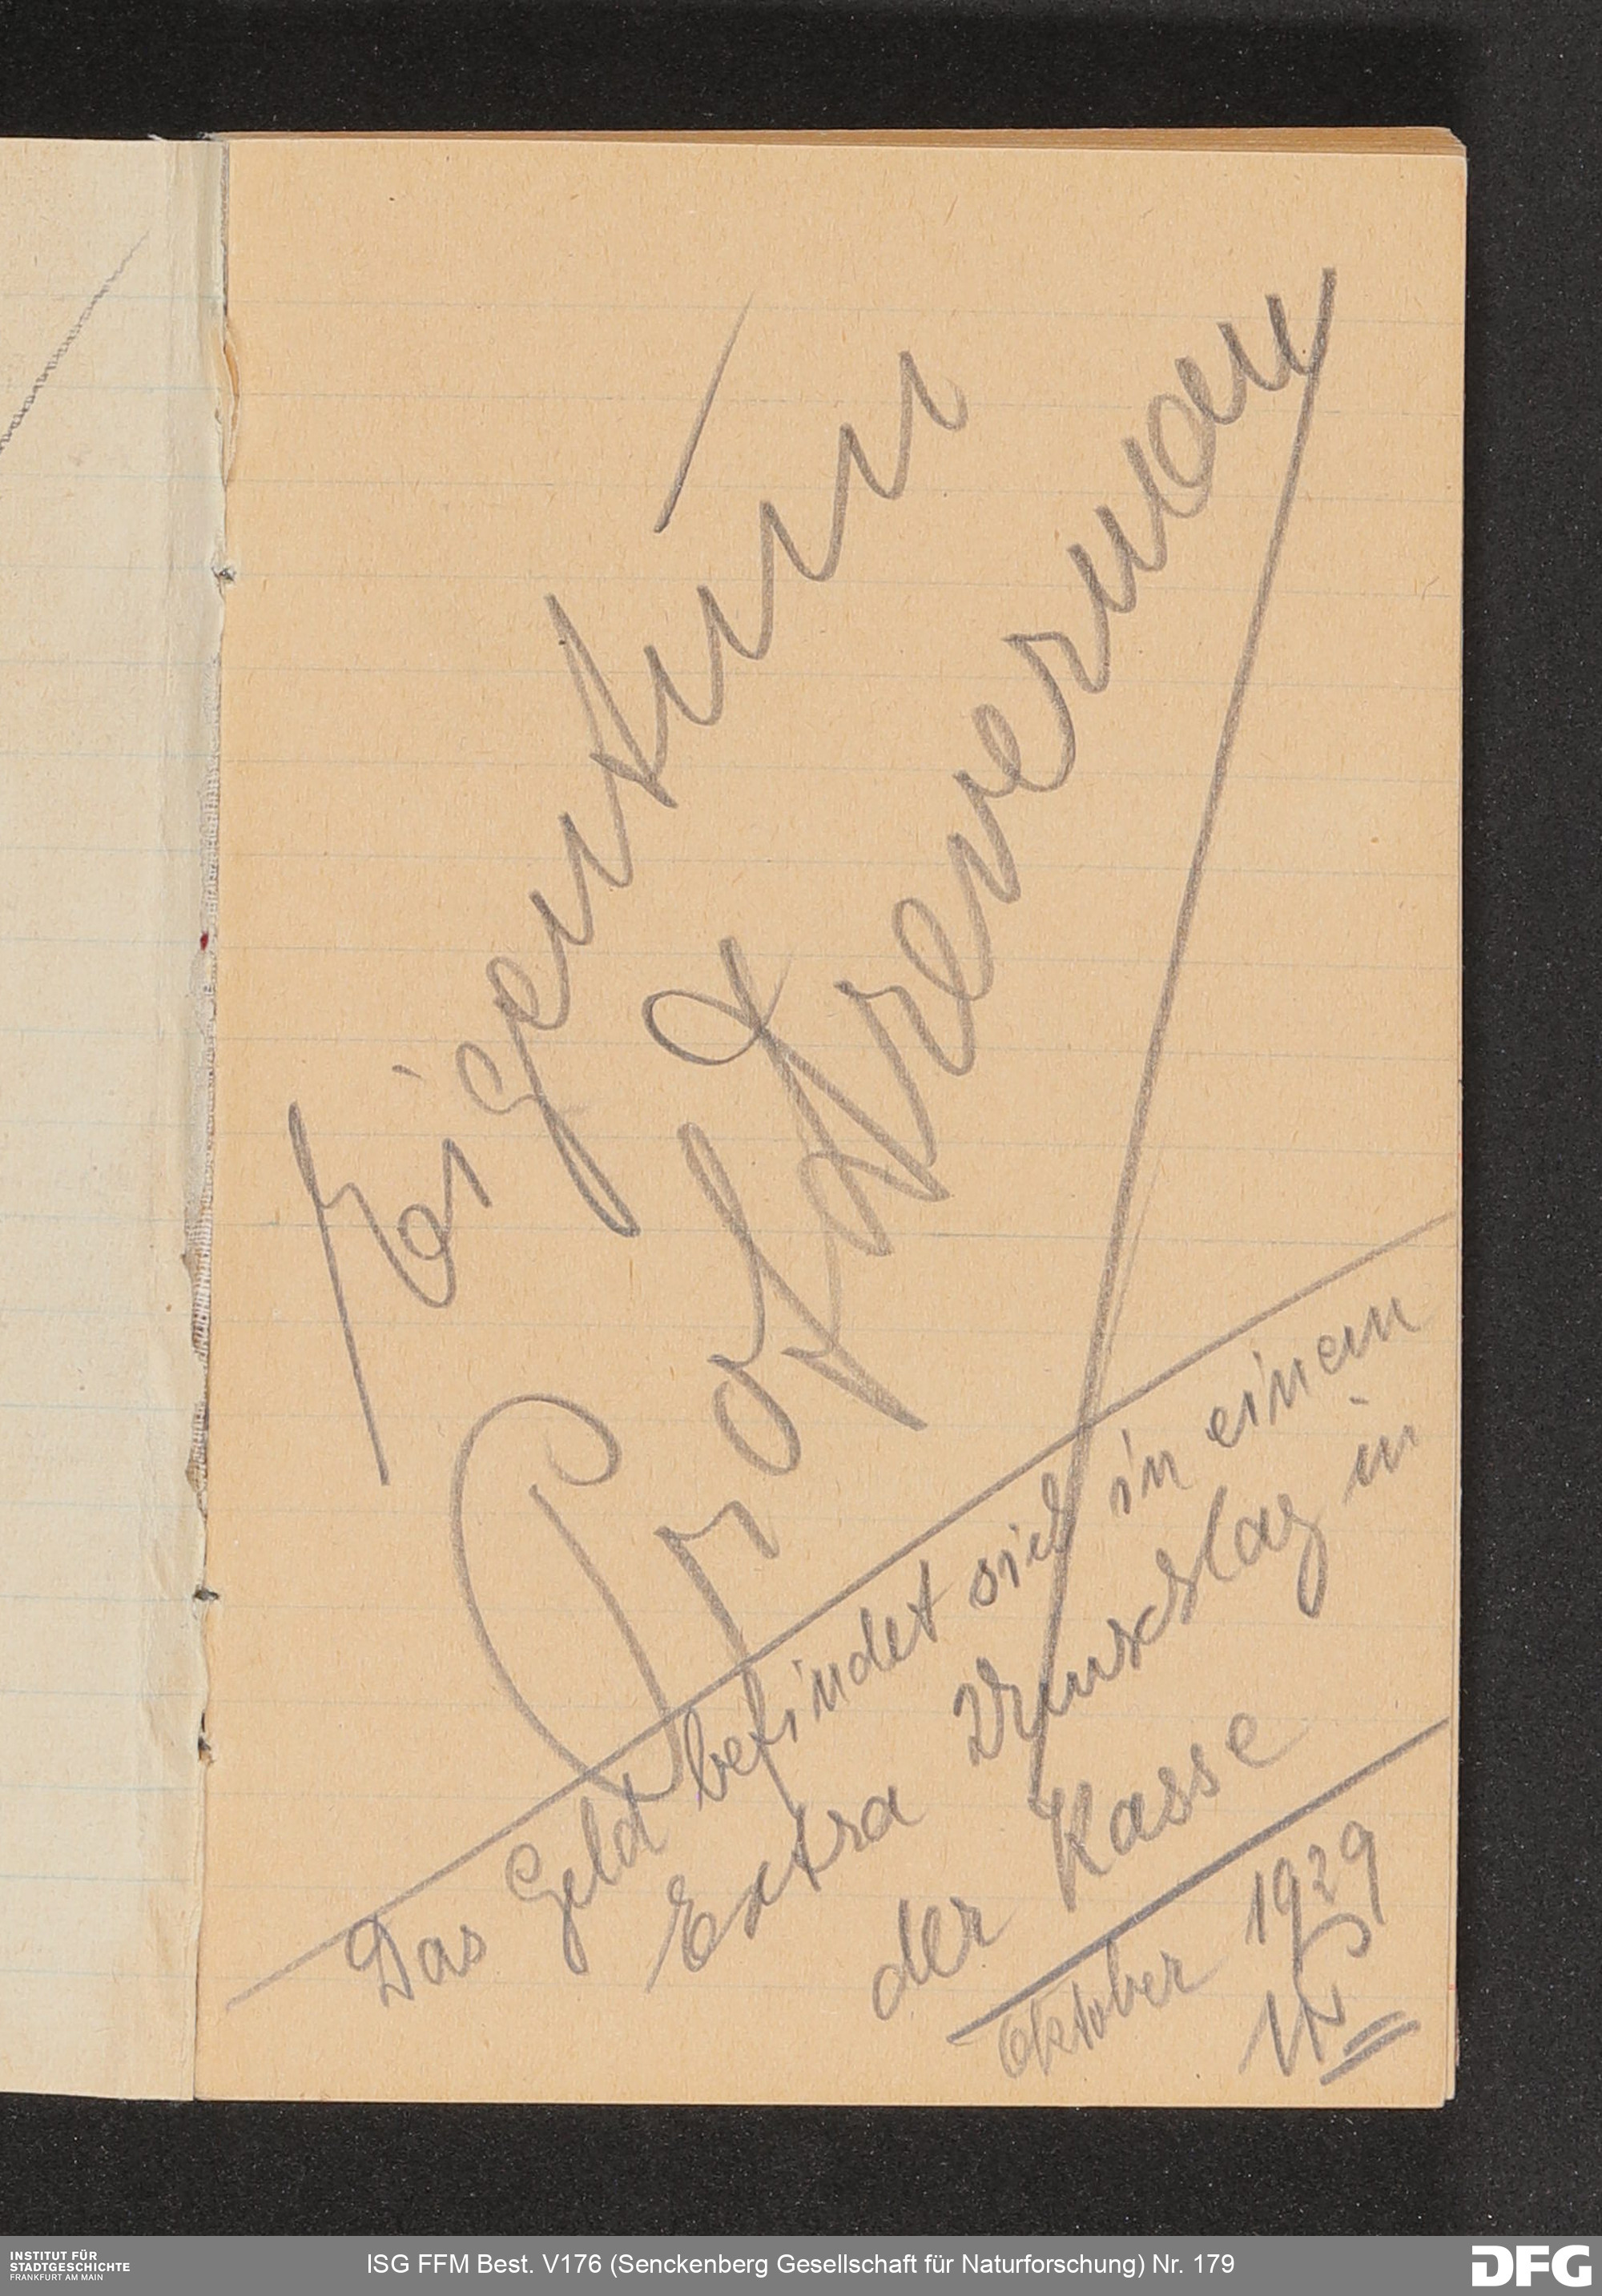 Eigentum
Prof Drevermann
Das Geld befindet sich in einem
Extra Umschlag in
der Kasse
Oktober 1929
INSTITUT FÜR
STADTGESCHICHTE
FRANKFURT AM MAIN
ISG FFM Best. V176 (Senckenberg Gesellschaft für Naturforschung) Nr. 179
DFG